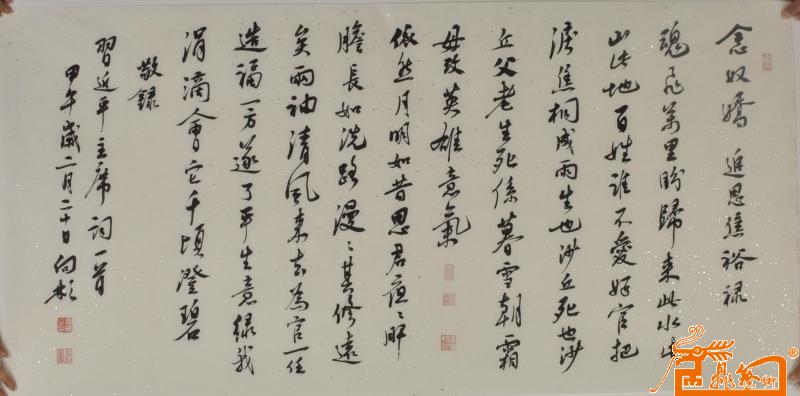 念奴嬌 追思焦裕禄
魂飛萬里盼歸来此水此
山此地百姓誰不愛好官把
淚焦桐成雨生也沙丘死也沙
丘父老生死係暮雪朝霜
毋改英雄意氣
依然月明如昔思君夜〻肝
膽長如洗路漫〻其修遠
矣兩袖清風来去為官一任
造福一方遂了平生意緑我
涓滴會它千頃澄碧
敬録
習近平主席詞一首
甲午歲二月二十日向彬